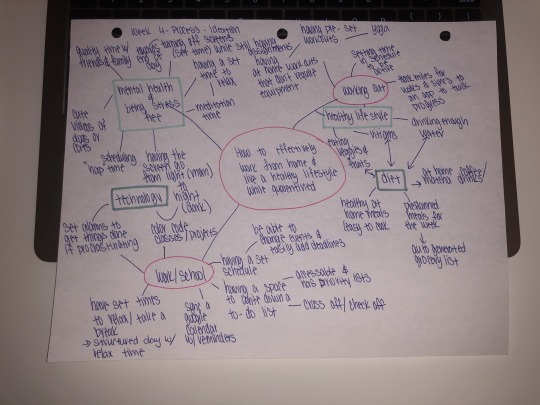 Week 4 - Process - Ideation
quality time w/
friends & family
turning off screens
(set time)
end of
day
while still having
assignments
having pre-set
workouts
yoga
having
at home workouts
that don't require
equipment
setting time
in schedule
working out
mental health
being & stress
free
having a set
time to
relax
meditation
time
cute
videos of
dogs or
cats
scheduling
"nap" time
having the
screen go
from light (morn)
to
night
(dark)
technology
set alarms to
get things done
if procrastinating
color code
classes/projects
How to effectively
work from home &
live a healthy lifestyle
while quarantined
healthy lifestyle
track progress
vitamins
drinking enough
water
eating
veggies &
fruits
diet
at home coffee/
morning drinks
healthy at
home meals
easy to make
preplanned
meals for
the week
auto generated
grocery list
work/school
be able to
change events &
easily add deadlines
having a set
schedule
having a space
to write down a
to-do list
accessible &
has priority lists
cross off/check off
have set times
to relax/take a
break
→ structured day w/
relax time
sync a
google
calendar
w/ reminders